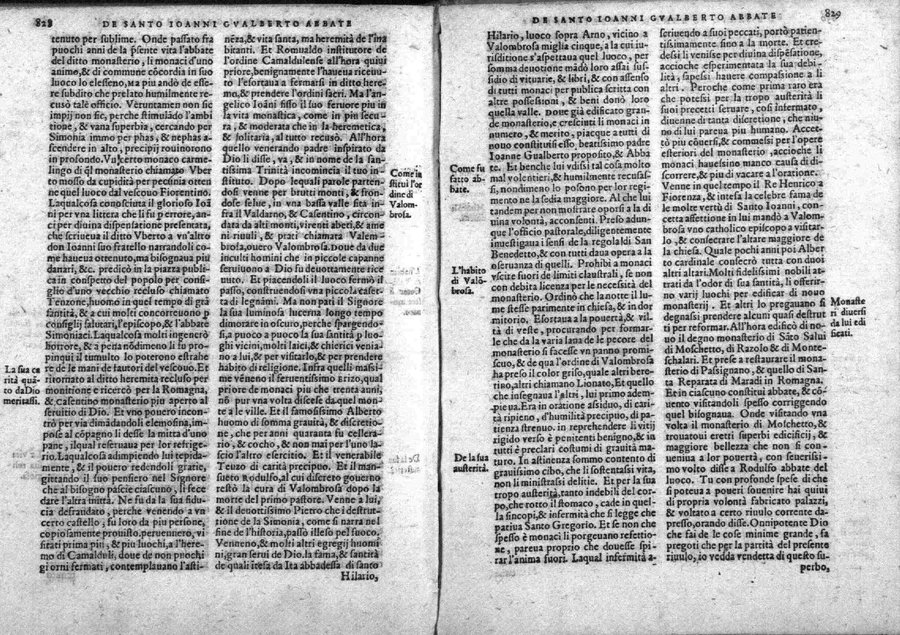 828
DE SANTO IOANNI GVALBERTO ABBATE
tenuto per sublime. Onde passato fra
puochi anni de la pſente vita l'abbate
del ditto monasterio, li monaci d'uno
animo, & di commune cōcordia in suo
luogo lo elesseno, Ma piu ando de esse-
re subdito che prelato humilmente re-
cusò tale officio. Veruntamen non sie
impij non sie, perche stimulādo l'ambi
tione, & vana superbia, cercando per
Simonia immo per phas, & nephas a-
scendere in alto, precipij rouinorono
in profondo. Vn certo monaco carne-
lingo di ql monasterio chiamato Vber
to mosso da cupidità per pecunia otten
ne quel luogo dal vescouo Fiorentino.
Laqual cosa conosciuta il glorioso Ioā
ni per vna littera che li fu perrore, an-
ci per diuina dispensatione presentata,
che scriueua il ditto Vberto a vn'altro
don Ioanni suo fratello narrandoli co-
me haueua ottenuto, ma bisognaua piu
danari, &c. predicò in la piazza publi-
ca in conspetto del popolo per consi-
glio d'uno vecchio recluso chiamato
Tenzone, huomo in quel tempo di grā
santità, & a cui molti concorreuono p
consiglij salutari, l'episcopo, & l'abbate
Simoniaci. Laqual cosa molti ingenerò
horrore, & a pena nōdimeno li fu pro-
pinqui il tumulto lo poterono estrahe
re de le mani de fautori del vescouo. Et
ritornato al ditto heremita recluso per
monitione e ricercò per la Romagna,
& Casentino monasterio piu aperto al
seruitio di Dio. Et vno pouero incon-
trò per via dimādandoli elemosina, im-
pose al cōpagno li desse la mitta d'uno
pane, il qual reseruaua per lor refrige-
rio. Laqual cosa adimpiendo lui tepida-
mente, & il pouero redendoli gratie,
gittando il suo pensiero nel Signore
che al bisogno pascie ciascuno, li fece
dare l'altra mittà. Ne fu da la sua fidu-
cia defraudato, perche venendo a vn
certo castello, fu loro da piu persone,
copiosamente prouisto. peruennero, vi
sitati prima piu, & piu luochi, a l'here-
mo di Camalduli, doue de non puochi
giorni fermati, contemplauano l'asti-
La sua ca
rità quā-
to da Dio
meritassi.
nēza, & vita santa, ma heremità de l'ina
bitanti. Et Romualdo institutore de
l'ordine Camaldulense all'hora quiui
priore, benignamente l'haueua riceuuto
lo l'esortaua a fermarsi in ditto here-
mo, & prendere l'ordini sacri. Ma l'an-
gelico Ioāni fisso il suo feruore piu in
la vita monastica, come in piu secu-
ra, & moderata che in la heremetica,
& solitaria, al tutto recusò. All'hora
quello venerando padre inspirato da
Dio li disse, va, & in nome de la san-
tissima Trinità incomincia il tuo in-
stituto. Dopo lequali parole parten-
dosi venne per varij monti, & fron-
dose selue, in vna bassa valle sita in-
fra il Valdarno, & Casentino, circon-
data da alti monti, virenti abeti, & ame
ni riuuli, & prati chiamata Valem-
brosa, ouero Valombrosa. Doue da due
inculti homini che in piccole capanne
seruiuono a Dio fu deuottamente rice
uuto. Et piacendoli il luoco fermò il
passo, construendosi vna piccola caset-
ta di legnāmi. Ma non patì il Signore
la sua luminosa lucerna longo tempo
dimorare in oscuro, perche spargendo-
si, a puoco a puoco la sua santità p luo-
ghi vicini, molti laici, & clerici venia-
no a lui, & per visitarlo, & per prendere
habito di religione. Infra quelli massi-
me vēneno il feruentissimo Erizo, qual
priore de monaci piu che trenta anni,
nō pur vna volta discese da quel mon-
te a le ville. Et il famosissimo Alberto
huomo di somma grauità, & discreti-
one, che per anni quaranta fu cellera-
rio, & cocho, & non mai per l'uno la-
scio l'altro esercitio. Et il venerabile
Teuzo di carità precipuo. Et il man-
sueto Rodulfo, al cui discreto gouerno
restò la cura di Valombrosa dopo la
morte del primo pastore. Venne a lui,
& il deuottissimo Pietro che i destrut-
tione de la Simonia, come si narra nel
fine de l'historia, passò illeso pel fuoco.
Venneno, & molti altri egregij huomi
ni, gran serui de Dio. la fama, & santità
de quali itesa da Ita abbadessa di santo
Hilario,
Come in
stituì l'or
dine di
Valom-
brosa.
DE SANTO IOANNI GVALBERTO ABBATE
829
Hilario, luoco sopra Arno, vicino a
Valombrosa miglia cinque, a la cui iu-
risditione s'aspettaua quel luoco, per
somma deuotione mādò loro assai sus-
sidio di vituarie, & libri, & con assenso
di tutti monaci per publica scrittura con
altre possessioni, & beni donò loro
quella valle. Doue già edificato gran-
de monasterio, e cresciuti li monaci in
numero, & merito, piacque a tutti di
nouo constituirsi esso, beatissimo padre
Ioanne Gualberto proposito, & Abba
te. Et benche lui vdissi tal cosa molto
mal volentieri, & humilmente recusas-
si, nondimeno lo posono per lor regi-
mento ne la sedia maggiore. Al che lui
tandem per non mostrare oporsi a la di
uina volontà, acconsentì. Preso adun-
que l'officio pastorale, diligentemente
inuestigaua i sensi de la regola di San
Benedetto, & con tutti daua opera a la
oseruanza di quelli. Prohibì a monaci
vscire fuori de limiti claustrali, se non
con debita licenza per le necessità del
monasterio. Ordinò che la notte il lu-
me stesse parimente in chiesa, & in dor
mitorio. Esortaua a la pouertà, & vil-
tà di veste, procurando per formar-
le che da la varia lana de le pecore del
monasterio si facesse vn panno promi-
scuo, & de qua l'ordine di Valombrosa
ha preso il color griso, quale altri bere-
tino, altri chiamano Lionato, Et quello
che insegnaua l'altri, lui primo adem-
pieua. Era in oratione assiduo, di cari-
tà ripieno, d'humilità precipuo, di pa-
tienza strenuo. in reprehendere li vitij
rigido verso è penitenti benigno, & in
tutti è preclari costumi di grauità ma-
turo. In astinenza sommo contento di
grauissimo cibo, che li sostentassi vita,
non li ministrassi delitie. Et per la sua
tropo austerità, tanto indebilì del cor-
po, che rotto il stomaco, cade in quel-
la sincopi, & infermità che si legge che
patiua Santo Gregorio. Et se non che
spesso è monaci li porgeuano refettio-
ne, pareua proprio che douesse spi-
rar l'anima fuori. Laqual infermità a-
Come fu
fatto ab-
bate.
L'habito
di Valō-
brosa.
De la sua
austerità.
scriuendo a suoi peccati, portò patien-
tissimamente sino a la morte. Et cre-
desi li venisse per diuina dispēsatione,
accioche esperimentata la sua debi-
lità, sapessi hauere compasione a li
altri. Peroche come prima raro era
che potessi per la tropo austerità li
suoi pastori seruare, così infermato,
diuenne di tanta discretione, che niu-
no di lui pareua piu humano. Accet-
tò piu cōuersi, & commesi per l'opere
esteriori del monasterio, accioche li
monaci hauesino manco causa di di-
scorrere, & piu di vacare a l'oratione.
Venne in quel tempo il Re Henrico a
Fiorenza, & intesa la celebre fama de
le molte vertù di Santo Ioanni, con
certa affettione in lui mandò a Valom
brosa vno catholico episcopo a visitar-
lo, & consecrare l'altare maggiore de
la chiesa. Quale pochi anni poi Alber
to cardinale consecrò tutta con duoi
altri altari. Molti fidelissimi nobili at-
trati da l'odor di sua santità, li offerir-
no varij luochi per edificar di nouo
monasterij. Et altri lo pregauano si
degnasi prendere alcuni quasi destrut
ti per reformar. All'hora edificò di no-
uo il degno monasterio di Sāto Salui
di Moschetto, di Razolo & di Monte-
schalari. Et prese a restaurare il mona-
sterio di Passignano, & quello di San-
ta Reparata di Maradi in Romagna.
Et in ciascuno constituì abbate, & cō-
uento visitandoli spesso corrigendo
quel bisognaua. Onde visitando vna
volta il monasterio di Moschetto, &
trouatoui eretti superbi edificij, &
maggiore bellezza che non si con-
ueniua a lor pouertà, con seuerissi-
mo volto disse a Rodulfo abbate del
luoco. Tu con profonde spese di che
si poteua a poueri souenire hai quiui
di propria volontà fabricato palazzi,
& voltato a certo riuulo corrente da-
presso, orando disse. Onnipotente Dio
che fai de le cose minime grande, fa
pregoti che per la partita del presente
riuulo, io vedda vendetta di questo su-
perbo,
Monaste
ri diuersi
da lui edi
ficati.